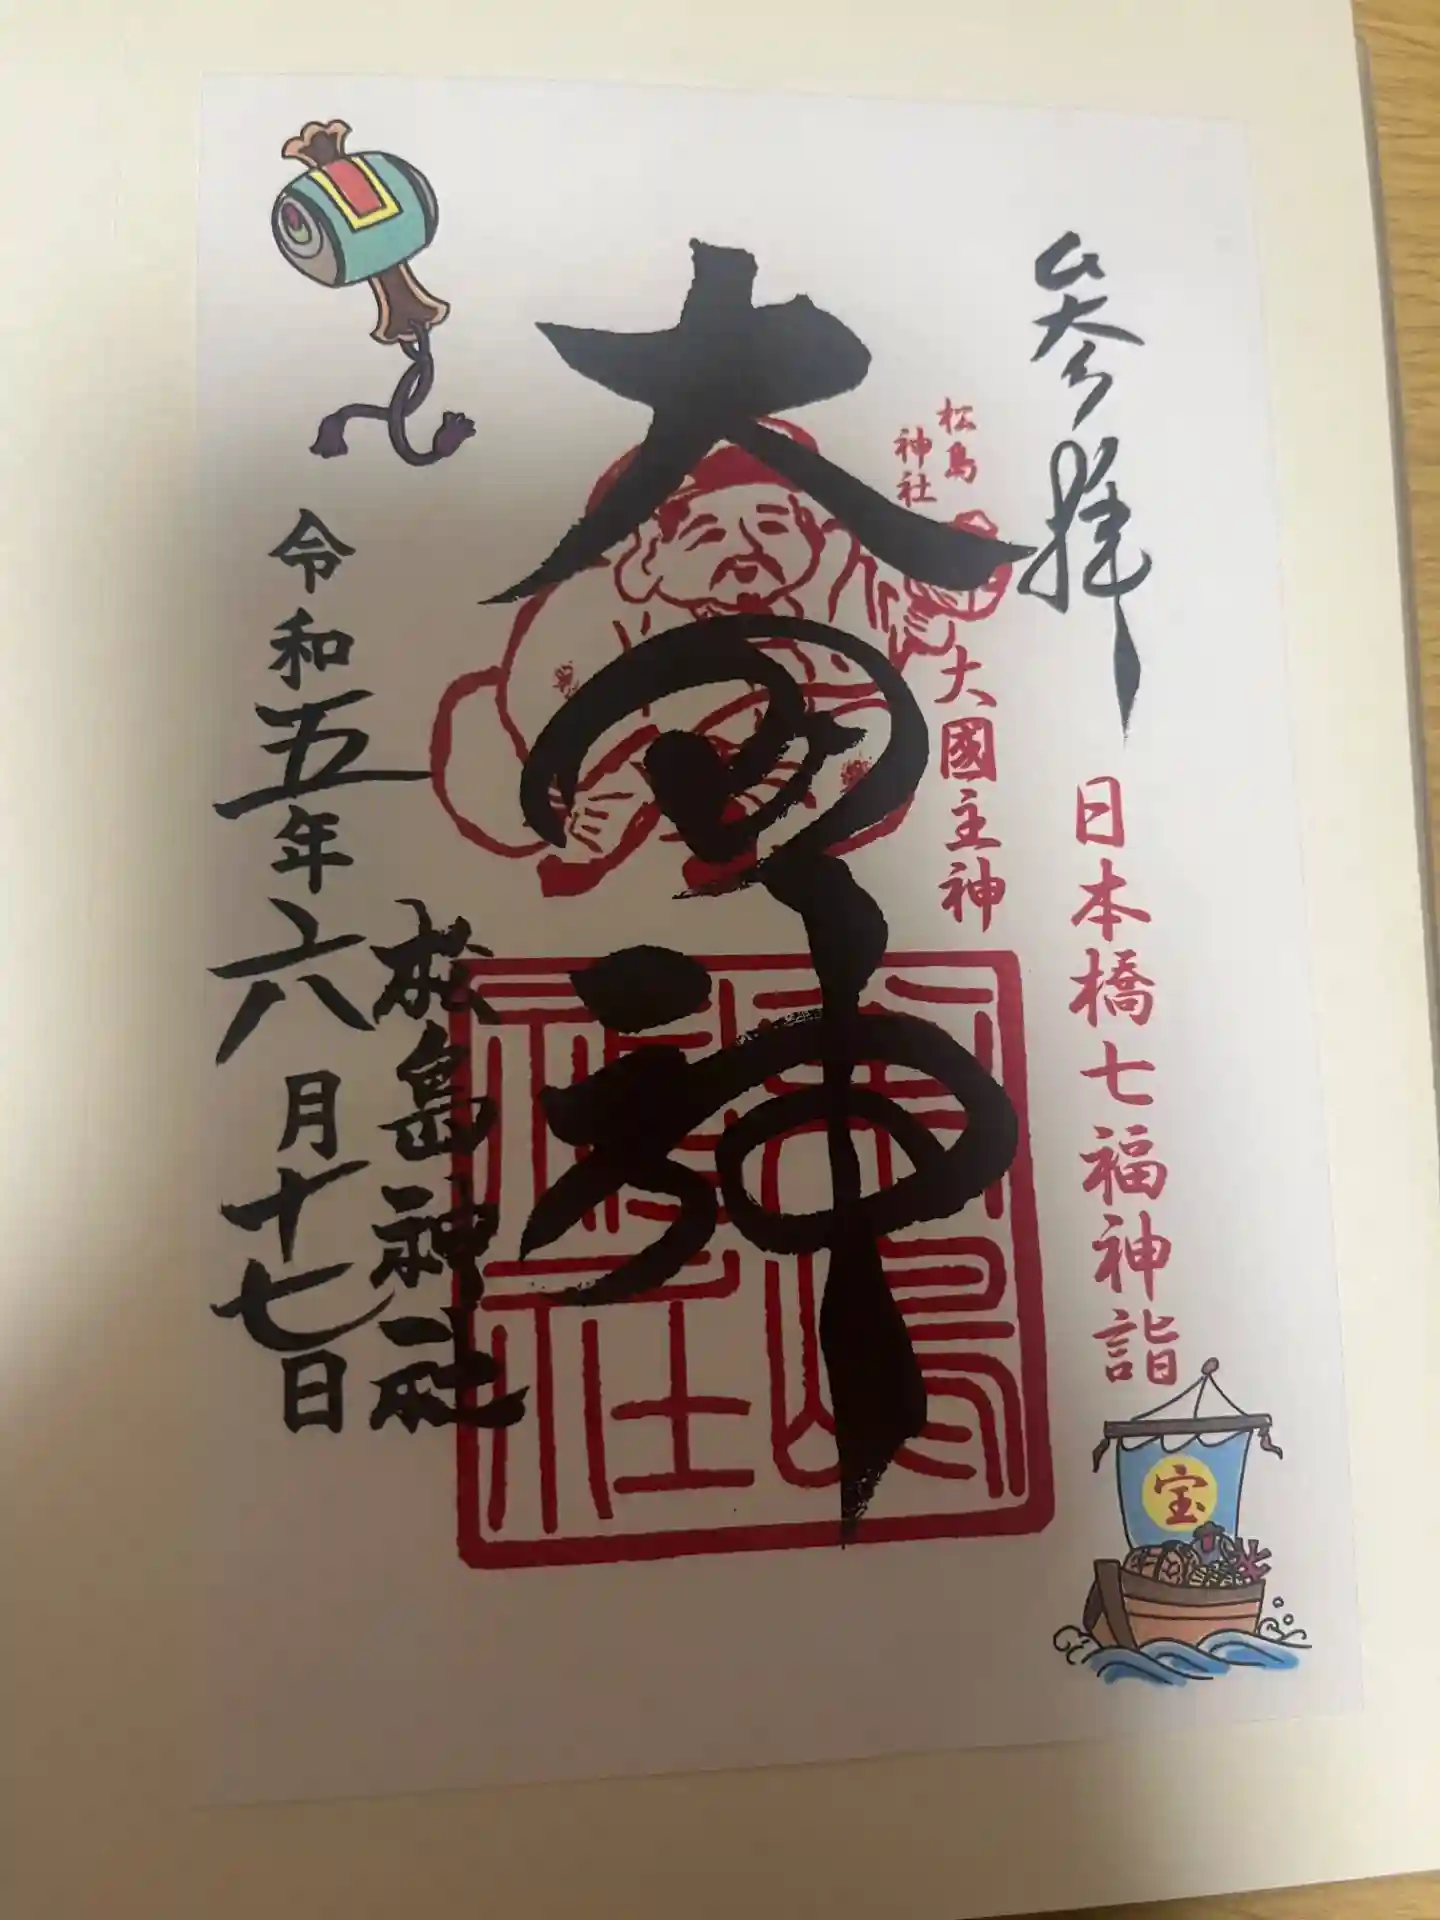 参拝
日本橋七福神詣
宝
松島
神社
大國主神
大国神
松島神社
令和五年六月十七日